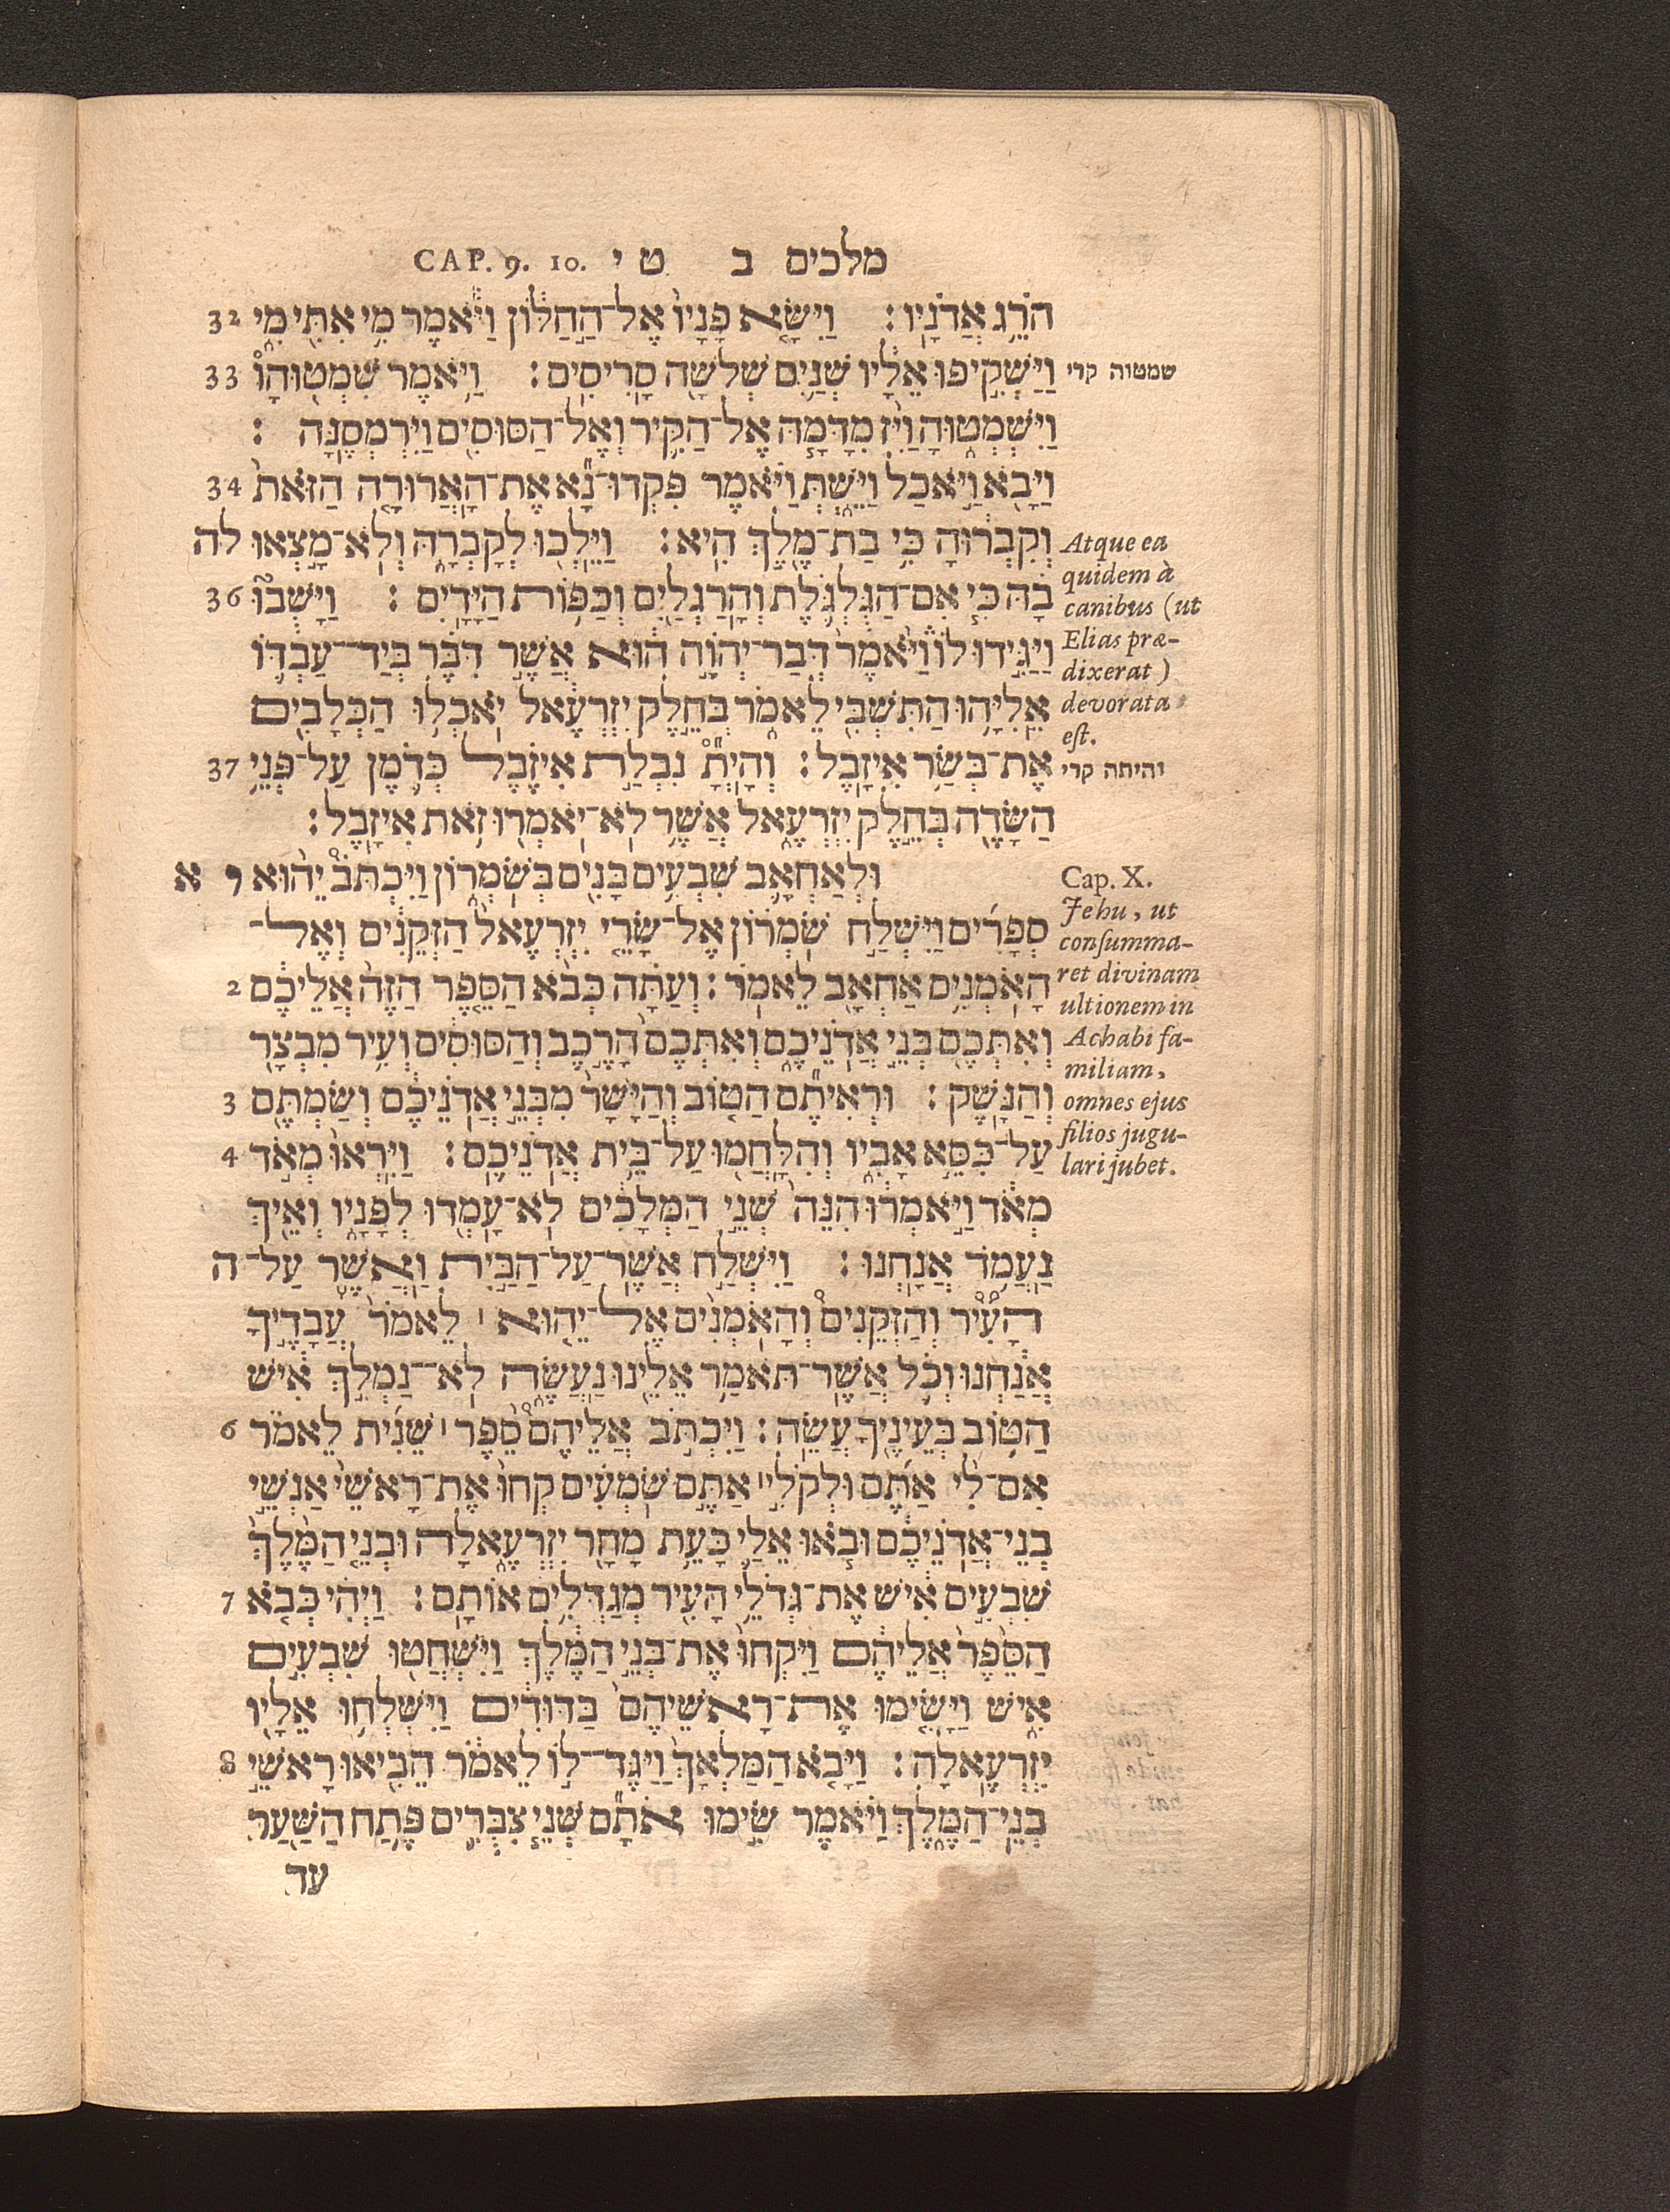 מלכים ב ט י CAP. 9. 10.
הֹרֵ֥ג אֲדֹנָֽיו׃ וַיִּשָּׂ֤א פָנָיו֙ אֶל־הַ֣חַלּ֔וֹן וַיֹּ֕אמֶר מִ֥י אִתִּ֖י מִ֑י 32
וַיַּשְׁקִ֣יפוּ אֵלָ֔יו שְׁנַ֥יִם שְׁלֹשָׁ֖ה סָרִיסִֽים׃ וַיֹּ֥אמֶר שִׁמְט֖וּהָו֯ 33
שמטוה קרי
וַֽיִּשְׁמְט֑וּהָ וַיִּ֨ז מִדָּמָ֧הּ אֶל־הַקִּ֛יר וְאֶל־הַסּוּסִ֖ים וַֽיִּרְמְסֶֽנָּה ׃
וַיָּבֹ֖א וַיֹּ֣אכַל וַיֵּ֑שְׁתְּ וַיֹּ֗אמֶר פִּקְדוּ־נָ֞א אֶת־הָאֲרוּרָ֤ה הַזֹּאת֙ 34
וְקִבְר֔וּהָ כִּ֥י בַת־מֶ֖לֶךְ הִֽיא׃ וַיֵּֽלְכ֖וּ לְקָבְרָ֑הּ וְלֹֽא־מָ֣צְאוּ לה
בָ֗הּ כִּ֧י אִם־הַגֻּלְגֹּ֛לֶת וְהָרַגְלַ֖יִם וְכַפּ֥וֹת הַיָּדָֽיִם ׃ וַיָּשֻׁבוּ֮ 36
וַיַּגִּ֣ידוּ לוֹ֒ וַיֹּ֙אמֶר֙ דְּבַר־יְהוָֹ֣ה ה֔וּא אֲשֶׁ֣ר דִּבֶּ֗ר בְּיַד־עַבְדּ֛וֹ
אֵלִיָּ֥הוּ הַתִּשְׁבִּ֖י לֵאמֹ֑ר בְּחֵ֣לֶק יִזְרְעֶ֔אל יֹאכְל֥וּ הַכְּלָבִ֖ים
אֶת־בְּשַׂ֥ר אִיזָֽבֶל׃ וְֽהָיְתָ֞֯ נִבְלַ֣ת אִיזֶ֗בֶל כְּדֹ֛מֶן עַל־פְּנֵ֥י 37
והיתה קרי
הַשָּׂדֶ֖ה בְּחֵ֣לֶק יִזְרְעֶ֑אל אֲשֶׁ֥ר לֹֽא־יֹאמְר֖וּ זֹ֥את אִיזָֽבֶל׃
Atque ea
quidem à
canibus (ut
Elias præ-
dixerat)
devorata
est.
וּלְאַחְאָ֛ב שִׁבְעִ֥ים בָּנִ֖ים בְּשֹׁמְר֑וֹן וַיִּכְתֹּב֩ יֵה֨וּא י א
סְפָרִ֜ים וַיִּשְׁלַ֣ח שֹׁמְר֗וֹן אֶל־שָׂרֵ֤י יִזְרְעֶאל֙ הַזְּקֵנִ֔ים וְאֶל־
הָאֹמְנִ֥ים אַחְאָ֖ב לֵאמֹֽר׃ וְעַתָּ֗ה כְּבֹ֨א הַסֵּ֤פֶר הַזֶּה֙ אֲלֵיכֶ֔ם 2
וְאִתְּכֶ֖ם בְּנֵ֣י אֲדֹנֵיכֶ֑ם וְאִתְּכֶם֙ הָרֶ֣כֶב וְהַסּוּסִ֔ים וְעִ֥יר מִבְצָ֖ר
וְהַנָּֽשֶׁק׃ וּרְאִיתֶ֞ם הַטּ֤וֹב וְהַיָּשָׁר֙ מִבְּנֵ֣י אֲדֹנֵיכֶ֔ם וְשַׂמְתֶּ֖ם 3
עַל־כִּסֵּ֣א אָבִ֑יו וְהִֽלָּחֲמ֖וּ עַל־בֵּ֥ית אֲדֹנֵיכֶֽם׃ וַיִּֽרְאוּ֙ מְאֹ֣ד 4
מְאֹ֔ד וַיֹּ֣אמְר֔וּ הִנֵּה֙ שְׁנֵ֣י הַמְּלָכִ֔ים לֹ֥א־עָמְד֖וּ לְפָנָ֑יו וְאֵ֖יךְ
נַעֲמֹ֥ד אֲנָֽחְנוּ׃ וַיִּשְׁלַ֣ח אֲשֶׁר־עַל־הַבַּ֣יִת וַאֲשֶׁ֪ר עַל־ ה
הָעִ֟יר וְהַזְּקֵנִים֩ וְהָאֹמְנִ֨ים אֶל־יֵה֤וּא ׀ לֵאמֹר֙ עֲבָדֶ֣יךָ
אֲנַ֔חְנוּ וְכֹ֛ל אֲשֶׁר־תֹּאמַ֥ר אֵלֵ֖ינוּ נַעֲשֶׂ֑ה לֹֽא־נַמְלִ֣ךְ אִ֔ישׁ
הַטּ֥וֹב בְּעֵינֶ֖יךָ עֲשֵֽׂה׃ וַיִּכְתֹּ֣ב אֲלֵיהֶם֩ סֵ֨פֶר ׀ שֵׁנִ֜ית לֵאמֹ֗ר 6
אִם־לִ֨י אַתֶּ֜ם וּלְקֹלִ֣י ׀ אַתֶּ֣ם שֹׁמְעִ֗ים קְחוּ֙ אֶת־רָאשֵׁי֙ אַנְשֵׁ֣י
בְנֵֽי־אֲדֹנֵיכֶ֔ם וּבֹ֨אוּ אֵלַ֜י כָּעֵ֤ת מָחָר֙ יִזְרְעֶ֔אלָה וּבְנֵ֤י הַמֶּ֙לֶךְ֙
שִׁבְעִ֣ים אִ֔ישׁ אֶת־גְּדֹלֵ֥י הָעִ֖יר מְגַדְּלִ֥ים אוֹתָֽם׃ וַיְהִ֗י כְּבֹ֤א 7
הַסֵּ֙פֶר֙ אֲלֵיהֶ֔ם וַיִּקְחוּ֙ אֶת־בְּנֵ֣י הַמֶּ֔לֶךְ וַֽיִּשְׁחֲט֖וּ שִׁבְעִ֣ים
אִ֑ישׁ וַיָּשִׂ֤ימוּ אֶת־רָֽאשֵׁיהֶם֙ בַּדּוּדִ֔ים וַיִּשְׁלְח֥וּ אֵלָ֖יו
יִזְרְעֶֽאלָה׃ וַיָּבֹ֤א הַמַּלְאָךְ֙ וַיַּגֶּד־ל֣וֹ לֵאמֹ֔ר הֵבִ֖יאוּ רָאשֵׁ֣י 8
בְנֵֽי־הַמֶּ֑לֶךְ וַיֹּ֗אמֶר שִׂ֣ימוּ אֹתָ֞ם שְׁנֵ֧י צִבֻּרִ֛ים פֶּ֥תַח הַשַּׁ֖עַר
Cap. X.
Jehu, ut
consumma-
ret divinam
ultionem in
Achabi fa-
miliam,
omnes ejus
filios jugu-
lari jubet.
עד